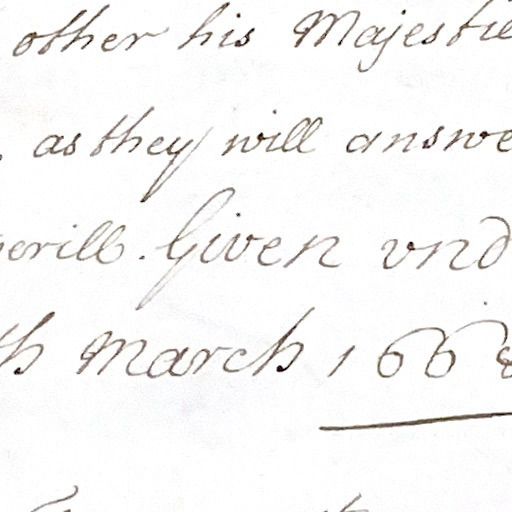 other his Majestie
as they will answe
perill. Given vnd
th March 1668